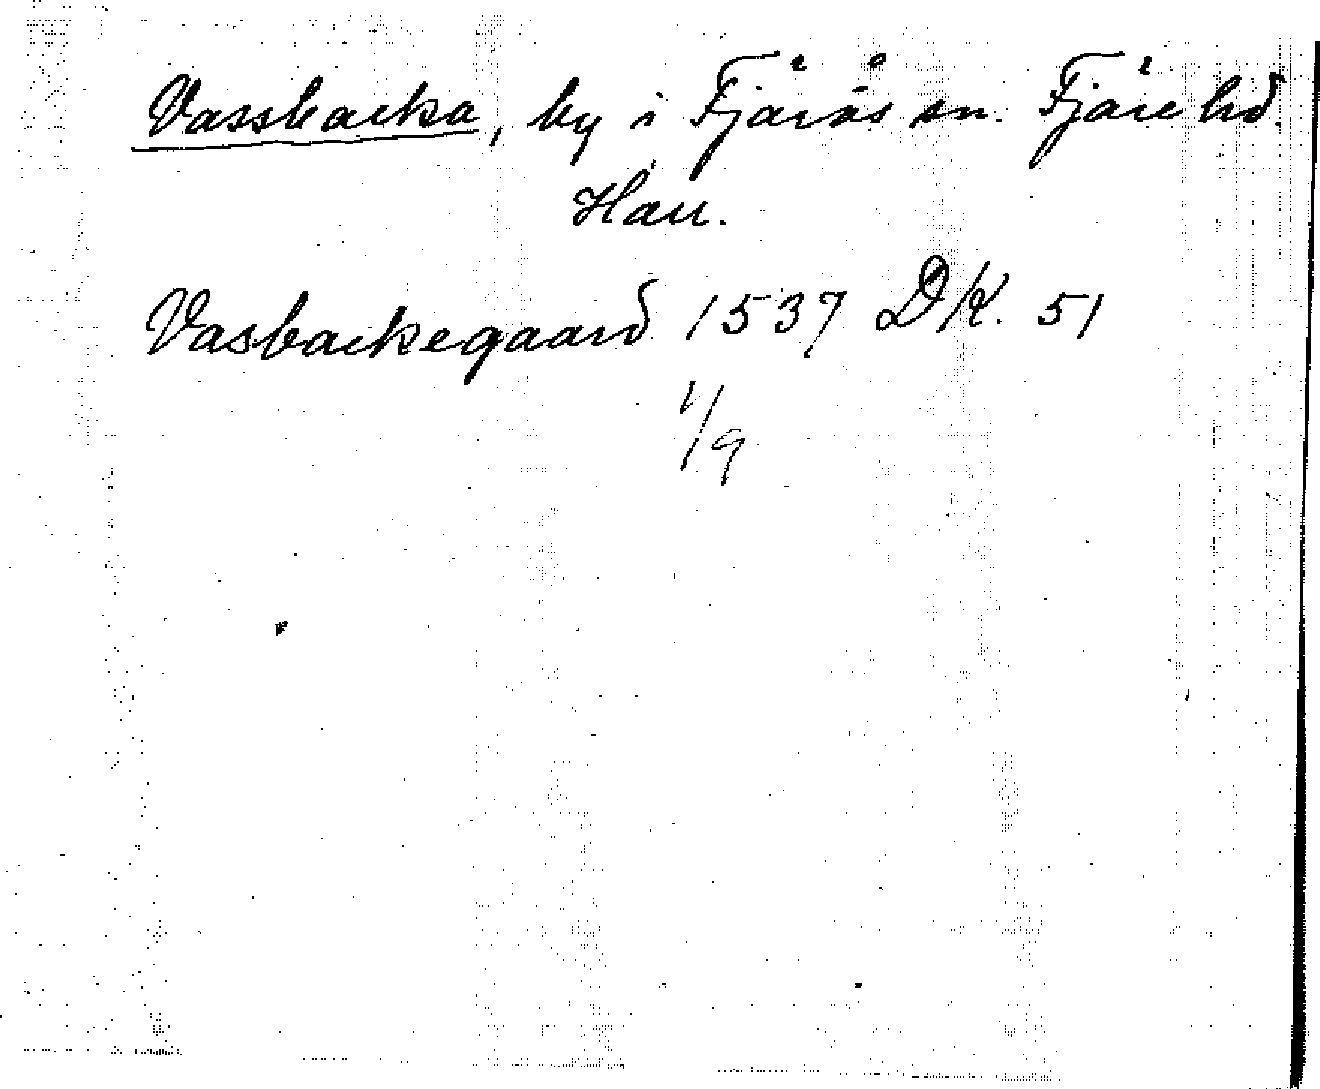 Vassbacka, by i Fjärås sn. Fjäre hd.
Hall.
Vasbackegaard 1537 DK. 51
1/9